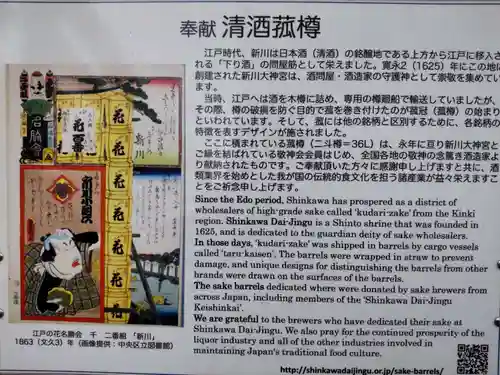 奉献 清酒菰樽
江戸時代、新川は日本酒（清酒）の銘醸地である上方から江戸に移入さ
れる「下り酒」の問屋筋として栄えました。寛永2（1625）年にこの地に
創建された新川大神宮は、酒問屋・酒造家の守護神として崇敬を集めてい
ます。
当時、江戸へは酒を木樽に詰め、専用の樽廻船で輸送していましたが、
その際、樽の破損を防ぐ目的で菰を巻き付けたのが菰冠（菰樽）の始まり
といわれています。そして、菰には他の銘柄と区別するために、各銘柄の
特徴を表すデザインが施されました。
ここに積まれている菰樽（二斗樽＝36L）は、永年に亘り新川大神宮と
ご縁を結ばれている敬神会会員はじめ、全国各地の敬神の念篤き酒造家よ
り献納されたものです。ご奉献頂いた方々に感謝申し上げますと共に、酒
類業界を始めとした我が国の伝統的食文化を担う諸産業が益々栄えますこ
とをご祈念申し上げます。
Since the Edo period, Shinkawa has prospered as a district of
wholesalers of high-grade sake called 'kudari-zake' from the Kinki
region. Shinkawa Dai-Jingu is a Shinto shrine that was founded in
1625, and is dedicated to the guardian deity of sake wholesalers.
In those days, 'kudari-zake' was shipped in barrels by cargo vessels
called 'taru-kaisen'. The barrels were wrapped in straw to prevent
damage, and unique designs for distinguishing the barrels from other
brands were drawn on the surfaces of the barrels.
The sake barrels dedicated where were donated by sake brewers from
across Japan, including members of the 'Shinkawa Dai-Jingu
Keishinkai'.
We are grateful to the brewers who have dedicated their sake at
Shinkawa Dai-Jingu. We also pray for the continued prosperity of the
liquor industry and all of the other industries involved in
maintaining Japan's traditional food culture.
http://shinkawadaijingu.or.jp/sake-barrels/
新川
江戸の花名勝会 千 二番組 「新川」
1863（文久3）年（画像提供：中央区立図書館）